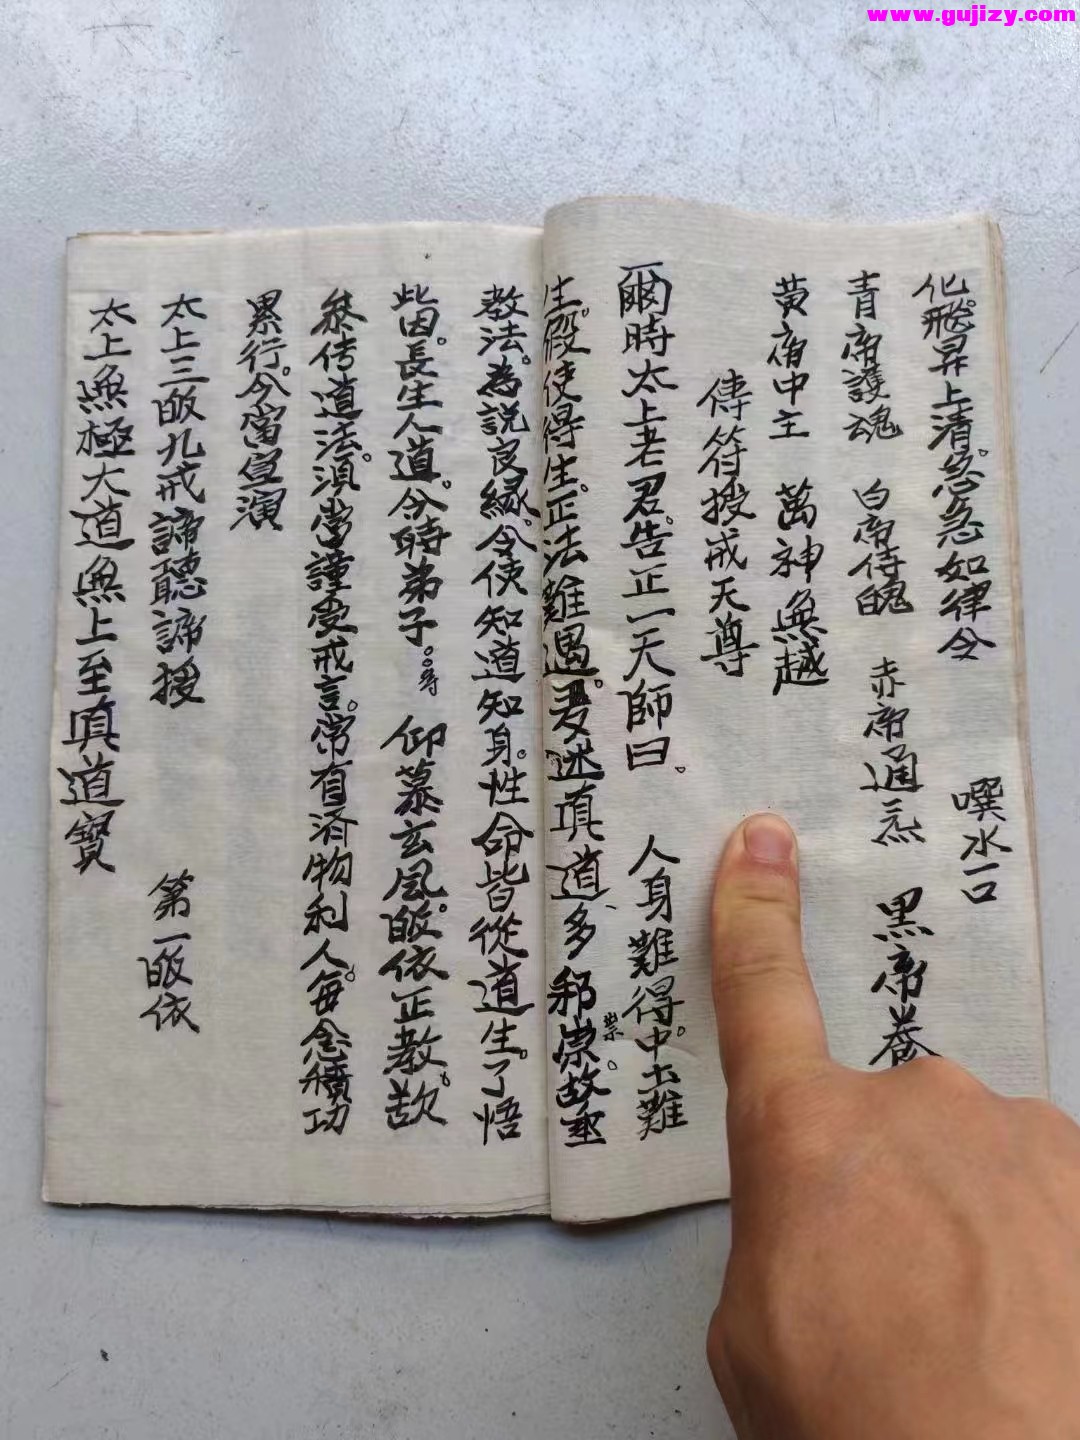 www.gujizy.com
化飛昇上清。急急如律令 噀水一口
青帝護魂 白帝侍魄 赤帝通炁 黑帝養
黃帝中主 萬神無越
傳符授戒天尊
爾時太上老君。告正一天師曰。 人身難得。中土難
生。假使得生。正法難遇。多迷真道、多邪崇。故垂
祟
教法。為説良緣。令使知道知身。性命皆從道生。了悟
此因。長生人道。今時弟子。〻等 仰慕玄風。皈依正教。欲
叅传道法。湏當謹受戒言。常有済物利人。每念積功
累行。今當宣演
太上三皈九戒諦聽諦授 第一皈依
太上無極大道無上至真道寶